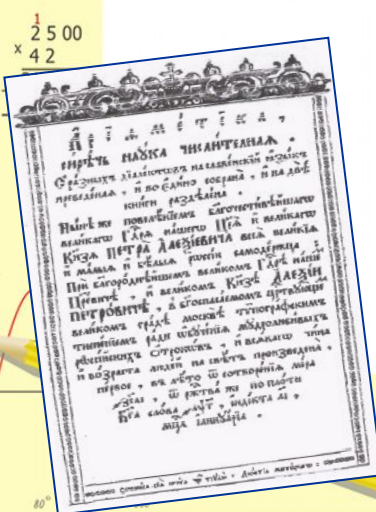 1
2 5 00
x
4 2
Аріѳметіка,
сирѣчь наука числителная.
Съ разныхъ діалектовъ на славенскій ꙗзыкъ
преведеная, и во едино собрана, и на двѣ
книги раздѣлена.
Нынѣ же повелѣніемъ благочестивѣйшагѡ
великагѡ Гдрѧ нашегѡ Црѧ и великагѡ
Кнзѧ ПЕТРА Алеѯіевича всеѧ великіѧ
и малыѧ и бѣлыѧ рѡссіи самодержца:
При благороднѣйшемъ великомъ Гдрѣ нашемъ
Цревичѣ, и великомъ Кнзѣ Алеѯіи
ПЕТРОВИЧѢ, в богоспасаемомъ царствующемъ
великомъ градѣ москвѣ типографскимъ
тисненіемъ ради ѡбученіѧ мудролюбивыхъ
рѡссійскихъ отрокѡвъ, и всѧкагѡ чина
и возраста людей на свѣтъ произведена,
первое, въ лѣто ѿ сотворенія міра
҂зсаі, ѿ ржтва же по плоти
Бга слова ҂аѱг, індікта аі,
мца іаннуаріа.
80°